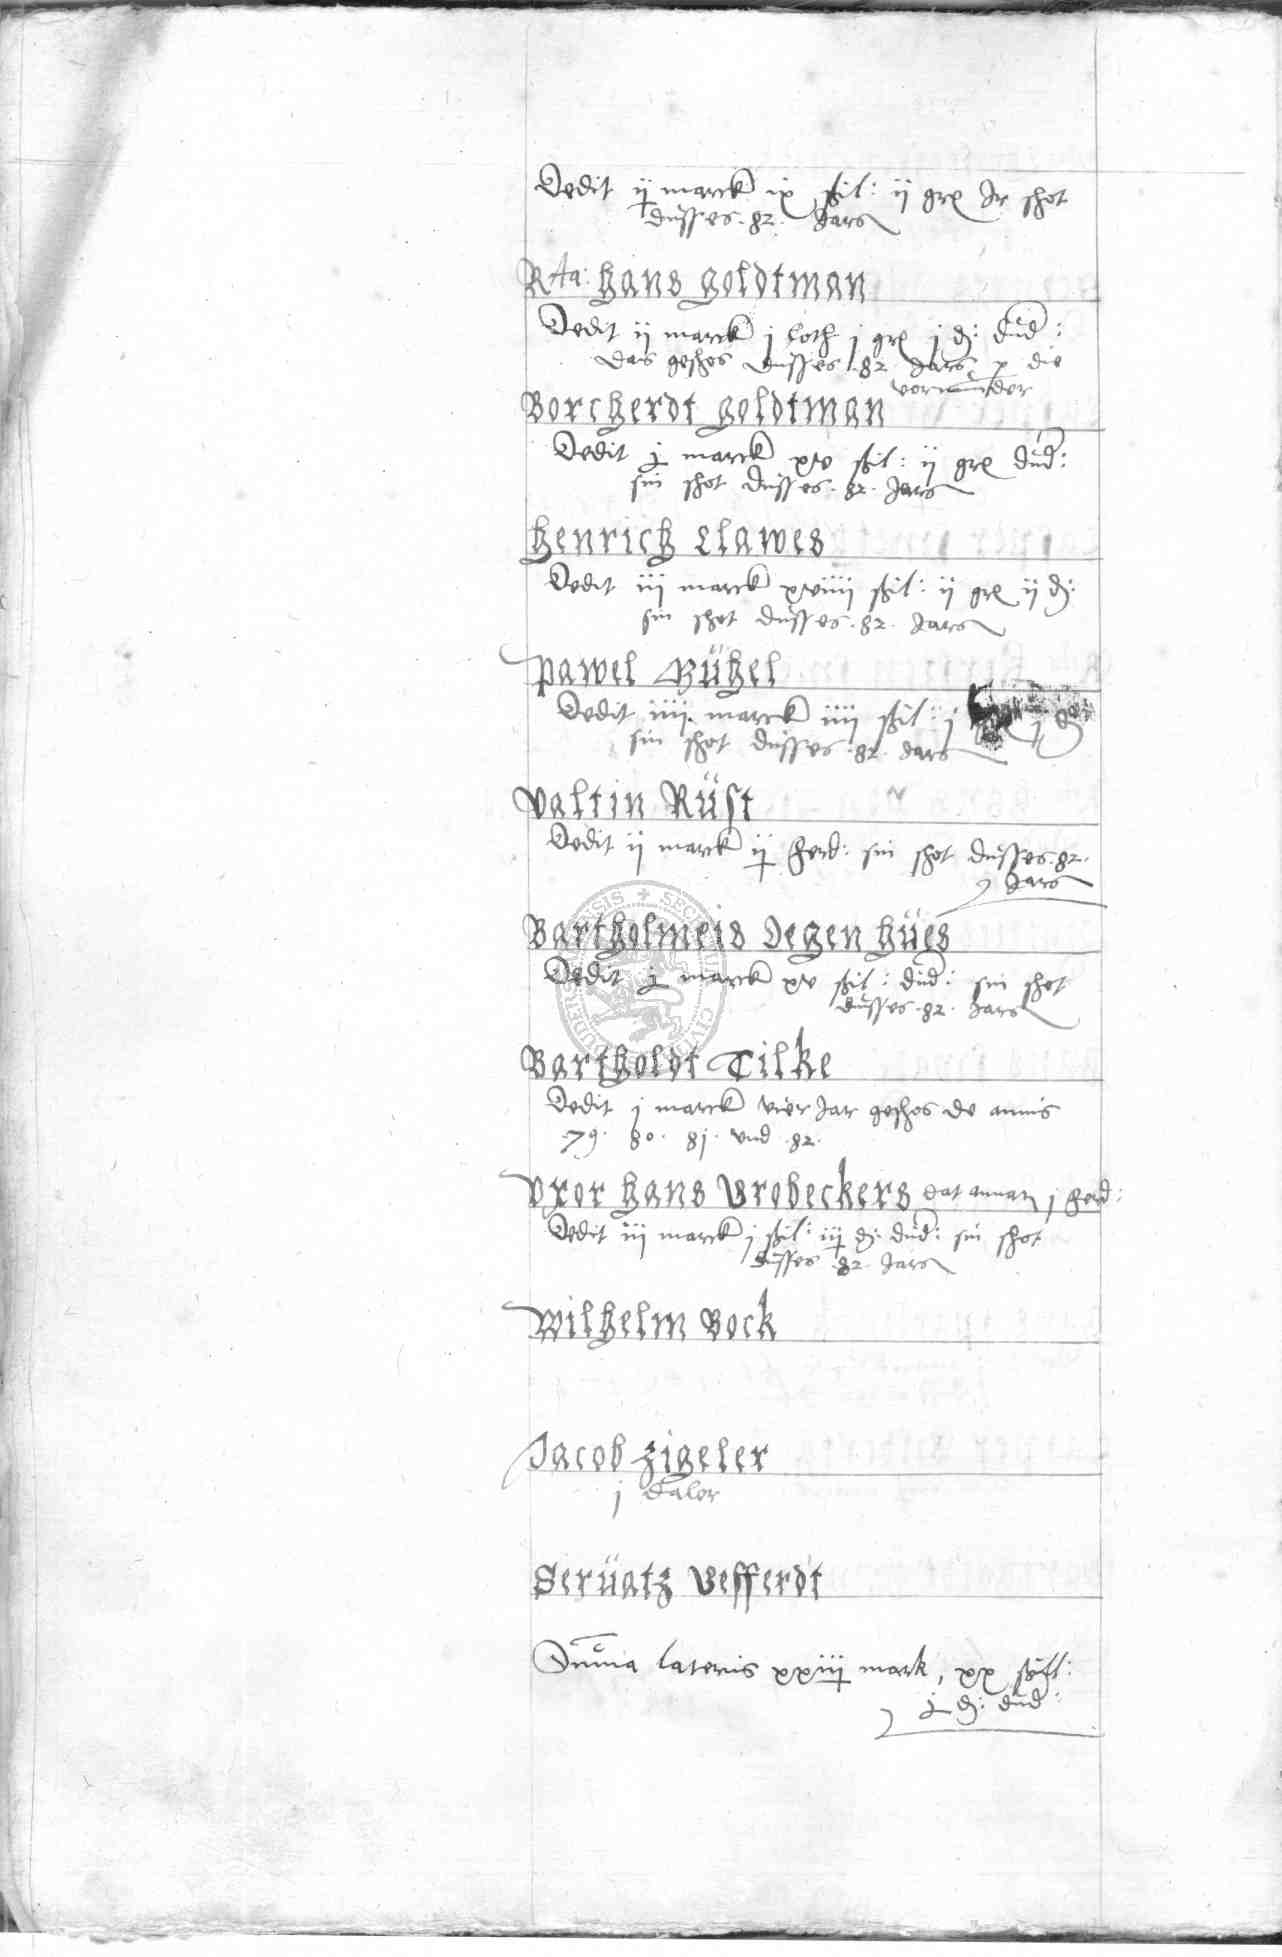 Dedit ij marck ix ßil: ij gr Ir schot
dusses .82. Jars
Rta: Hans Goldtman
Dedit ij marck j loth j gr j d: dud:
das geschos dusses .82. Jars p die
vormunder
Borcherdt Goldtman
Dedit j marck xv ßil: ij gr dud:
sin schot dusses .82. Jars
Henrich Clawes
Dedit iij marck xviiij ßil: ij gr ij d:
sin schot dusses .82. Jars
Pawel Bühel
Dedit iiij marck iiij ßil: j
sin schot dusses .82. Jars
Valtin Rüst
Dedit ij marck ij ferd: sin schot dusses .82.
Jars
Bartholmeis Degenhües
Dedit j marck xv ßil: dud: sin schot
dusses .82. Jars
Bartholdt Tilke
Dedit j marck vier Jar geschos de annis
.79. 80. 81. vnd .82.
Vxor Hans Brobeckers dat j ferd:
Dedit iij marck j ßil: iij d: dud: sin schot
dusses .82. Jars
Wilhelm Bock
Jacob Zigeler
j daler
Serüatz Vefferdt
Summa lateris xxiij mark, xx ßill:
j d: dud: